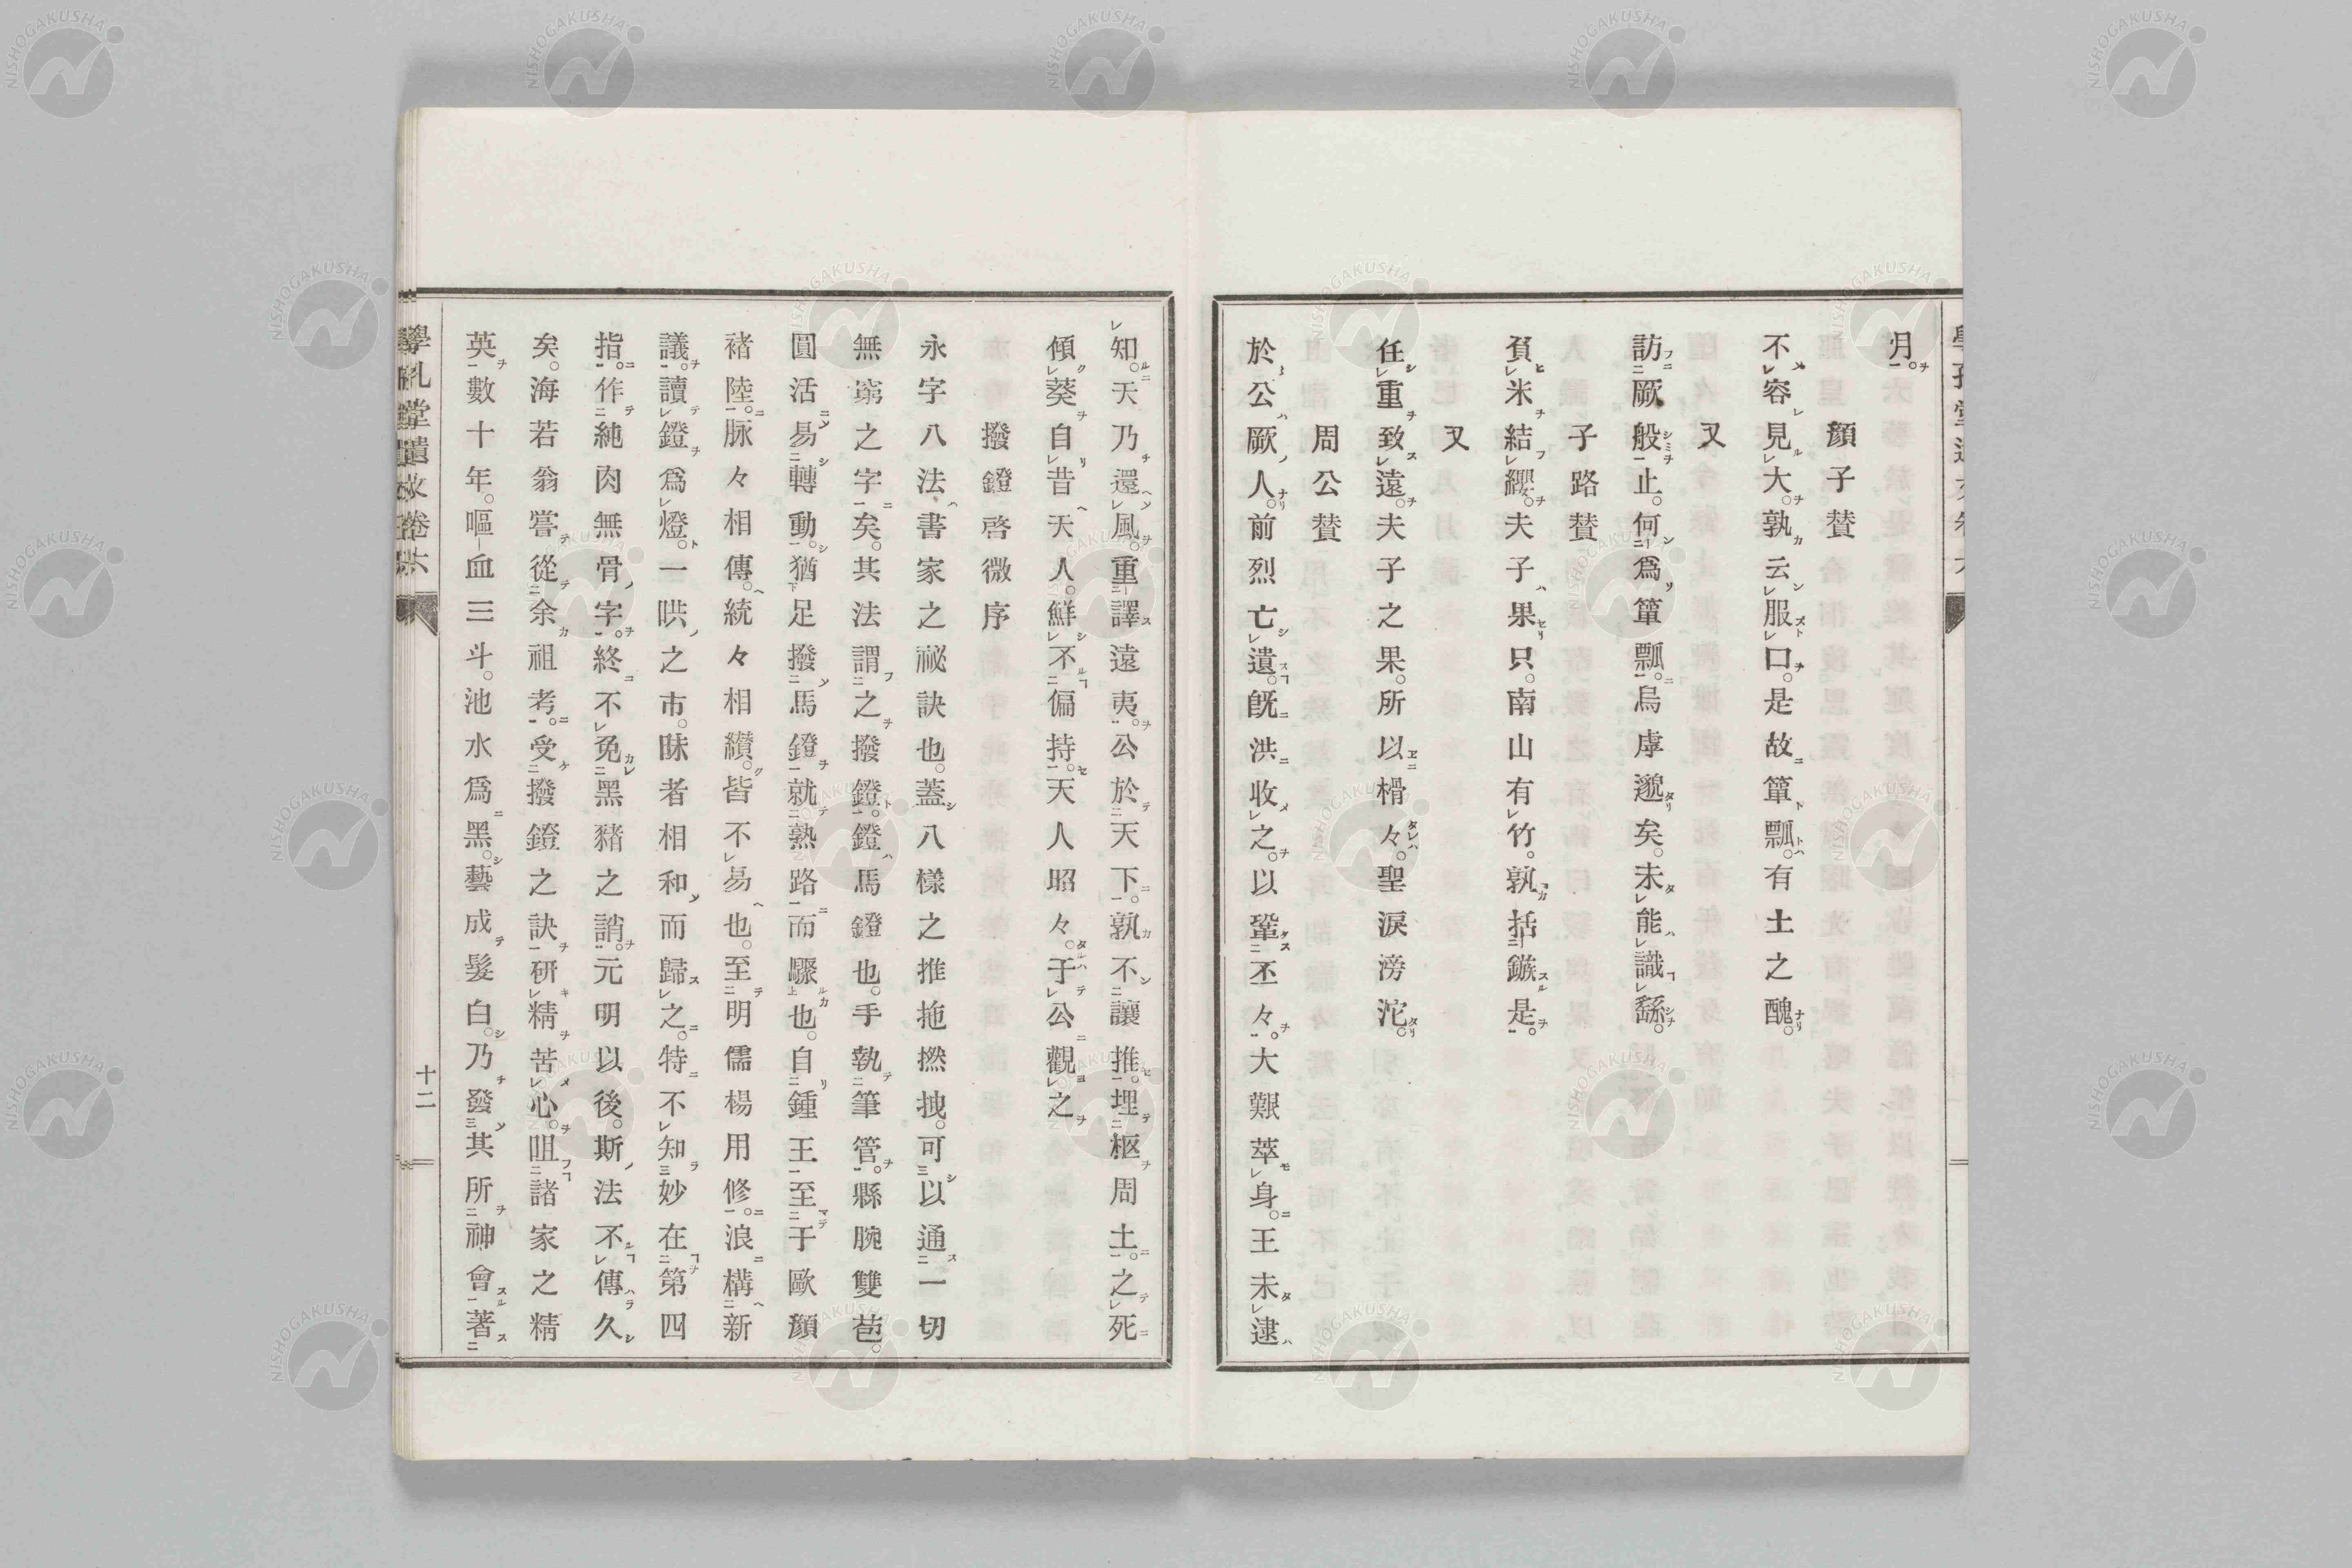 月。
顏子賛
不容見大。孰云服口。是故簞瓢。有土之醜。
又
訪厥般止。何爲簞瓢。烏虖邈矣。未能識繇。
子路賛
負米結纓。夫子果只。南山有竹。孰括鏃是。
又
任重致遠。夫子之果。所以榾々。聖淚滂沱。
周公賛
於公厥人。前烈亡遺。旣洪收之。以鞏丕々。大艱萃身。王未逮
知。天乃還風。重譯遠夷。公於天下。孰不讓推。埋枢周土。之死
傾葵自昔天人。鮮不偏持。天人昭々。于公觀之
撥鐙啓微序
永字八法。書家之祕訣也。蓋八樣之推拖撚拽。可以通一切
無窮之字矣。其法謂之撥鐙。鐙馬鐙也。手執筆管。縣腕雙苞。
圓活易轉動。猶足撥馬鐙就熟路而驟也。自鍾王至于歐顏
褚陸。脉々相傳。統々相纘。皆不易也。至明儒楊用修。浪構新
議。讀鐙爲燈。一哄之市。昧者相和而歸之。特不知妙在第四
指。作純肉無骨字。終不免黑豬之誚。元明以後。斯法不傳久
矣。海若翁嘗從余祖考。受撥鐙之訣研精苦心。咀諸家之精
英數十年。嘔血三斗。池水爲黑。藝成髮白。乃發其所神會著
學孔堂遺文卷六
十二
NISHOGAKUSHA